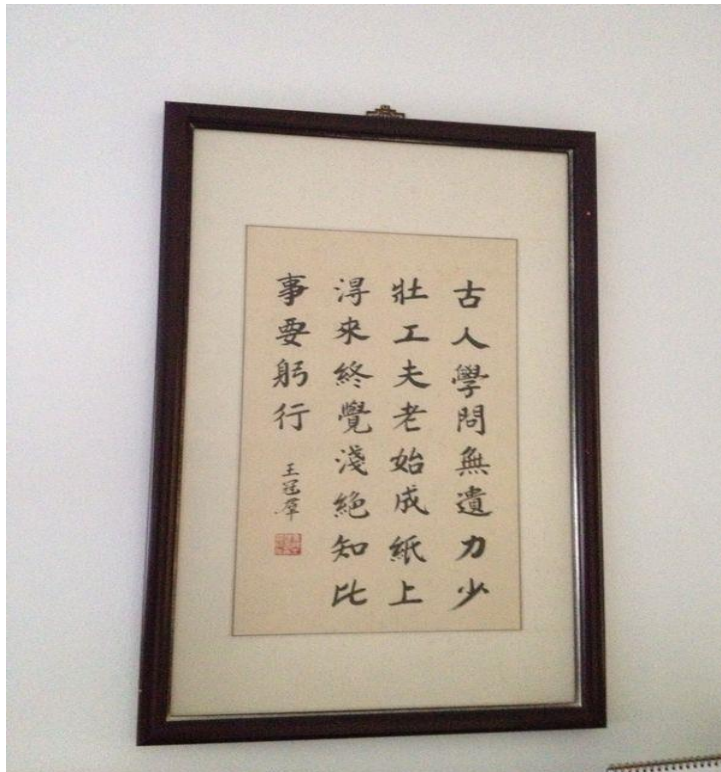 古人學問無遺力少
壯工夫老始成紙上
淂來終覺淺絕知比
事要躬行
王冠群